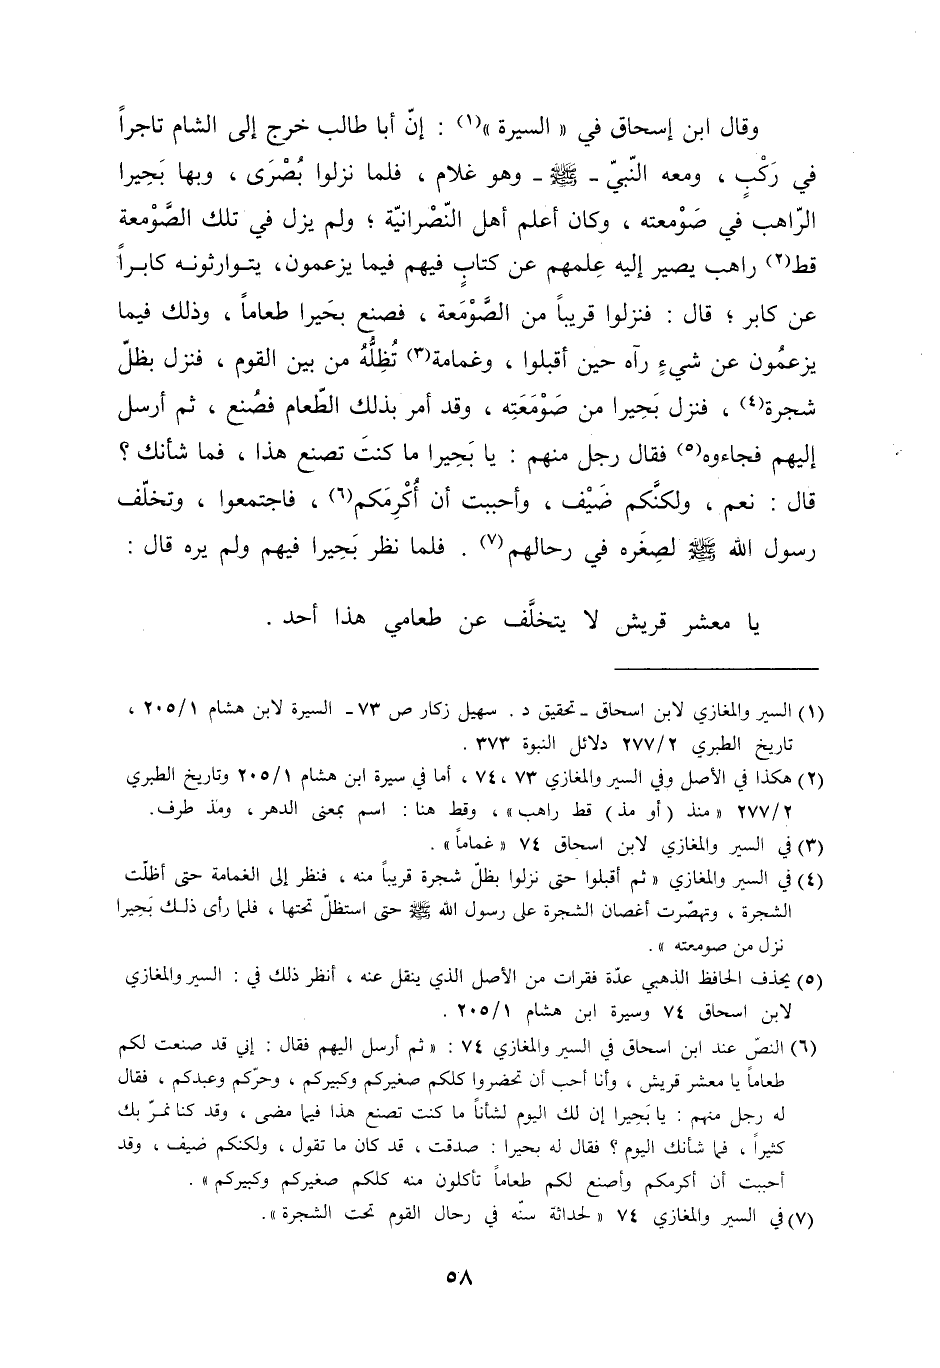 وقال ابن إسحاق في « السيرة »(١) : إنّ أبا طالب خرج إلى الشام تاجراً
في رَكْبٍ ، ومعه النّبيّ ـ ﷺ ـ وهو غلام ، فلما نزلوا بُصْرَى ، وبها بَحِيرا
الرّاهب في صَوْمعته ، وكان أعلم أهل النّصْرانيّة ؛ ولم يزل في تلك الصَّوْمعة
قط(٢) راهب يصير إليه عِلمهم عن كتابٍ فيهم فيما يزعمون، يتوارثونه كابراً
عن كابر ؛ قال : فنزلوا قريباً من الصَّوْمَعة ، فصنع بحَيرا طعاماً ، وذلك فيما
يزعمُون عن شيءٍ رآه حين أقبلوا ، وغمامة(٣) تُظِلُّهُ من بين القوم ، فنزل بظلّ
شجرة(٤) ، فنزل بَحِيرا من صَوْمَعَتِه ، وقد أمر بذلك الطّعام فصُنع ، ثم أرسل
إليهم فجاءوه(٥) فقال رجل منهم : يا بَحِيرا ما كنتَ تصنع هذا ، فما شأنك ؟
قال : نعم ، ولكنَّكم ضَيْف ، وأحببت أن أُكْرِمَكم(٦) ، فاجتمعوا ، وتخلّف
رسول الله ﷺ لصِغَره في رحالهم(٧) . فلما نظر بَحِيرا فيهم ولم يره قال :
يا معشر قريش لا يتخلَّف عن طعامي هذا أحد .
(١) السير والمغازي لابن اسحاق ـ تحقيق د . سهيل زكار ص ٧٣ ـ السيرة لابن هشام ٢٠٥/١ ،
تاريخ الطبري ٢٧٧/٢ دلائل النبوة ٣٧٣ .
(٢) هكذا في الأصل وفي السير والمغازي ٧٣ ،٧٤ ، أما في سيرة ابن هشام ٢٠٥/١ وتاريخ الطبري
٢٧٧/٢ « منذ ( أو مذ ) قط راهب» ، وقط هنا : اسم بمعنى الدهر ، ومذ ظرف.
(٣) في السير والمغازي لابن اسحاق ٧٤ « غماماً » .
(٤) في السير والمغازي « ثم أقبلوا حتى نزلوا بظلّ شجرة قريباً منه ، فنظر إلى الغمامة حتى أظلّت
الشجرة ، وتهصّرت أغصان الشجرة على رسول الله ﷺ حتى استظلّ تحتها ، فلما رأى ذلك بَحيرا
نزل من صومعته » .
(٥) يحذف الحافظ الذهبي عدّة فقرات من الأصل الذي ينقل عنه ، أنظر ذلك في : السير والمغازي
لابن اسحاق ٧٤ وسيرة ابن هشام ٢٠٥/١ .
(٦) النصّ عند ابن اسحاق في السير والمغازي ٧٤ : « ثم أرسل اليهم فقال : إني قد صنعت لكم
طعاماً يا معشر قريش ، وأنا أحب أن تحضروا كلكم صغيركم وكبيركم ، وحرّكم وعبدكم ، فقال
له رجل منهم : يا بَحيرا إن لك اليوم لشأناً ما كنت تصنع هذا فيما مضى ، وقد كنا نمرّ بك
كثيراً ، فما شأنك اليوم ؟ فقال له بحيرا : صدقت ، قد كان ما تقول ، ولكنكم ضيف ، وقد
أحببت أن أكرمكم وأصنع لكم طعاماً تأكلون منه كلكم صغيركم وكبيركم » .
(٧) في السير والمغازي ٧٤ « لحداثة سنّه في رحال القوم تحت الشجرة ».
٥٨